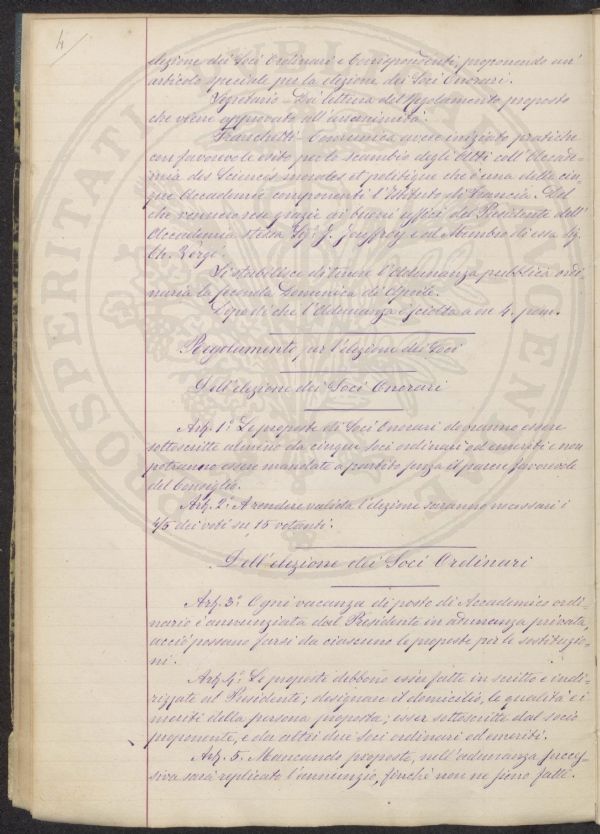 4
elezione dei Soci Ordinari e Corrispondenti, proponendo un'
articolo speciale per la elezione dei Soci Onorari.
Segretario - Dà lettura del Regolamento proposto
che viene approvato all'unanimità.
Franchetti - Comunica avere iniziato pratiche
con favorevole esito per lo scambio degli Atti coll'Accade-
mia des Sciences morales et politiques che è una delle cin-
que Accademie componenti l'Istituto di Francia. Del
che vennero rese grazie ai buoni uffici del Presidente dell'
Accademia stessa Sig. J. Jouffroy e ad Membro di essa Sig.
Ch. Vergé.
Si stabilisce di tenere l'Adunanza pubblica ordi-
naria la seconda Domenica di Aprile.
Dopo di che l'Adunanza è sciolta a ore 4. pom.
Regolamento per l'elezione dei Soci
Dell'elezione dei Soci Onorari
Art. 1.° Le proposte di Soci Onorari dovranno essere
sottoscritte almeno da cinque soci ordinari od emeriti e non
potranno esser mandate a partito senza il parere favorevole
del Consiglio.
Art. 2.° A rendere valida l'elezione saranno necessari i
4/5 dei voti su 15 votanti.
Dell'elezione dei Soci Ordinari
Art. 3.° Ogni vacanza di posto di Accademico ordi-
nario è annunziata dal Presidente in adunanza privata,
acciò possano farsi da ciascuno le proposte per le sostituzio-
ni.
Art. 4.° Le proposte debbono esser fatte in scritto e indi-
rizzate al Presidente; designare il domicilio, le qualità e i
meriti della persona proposta; esser sottoscritte dal socio
proponente, e da altri due soci ordinari od emeriti.
Art. 5. Mancando proposte, nell'adunanza succes-
siva sarà replicato l'annunzio, finchè non ne sieno fatte.
PROSPERITATI